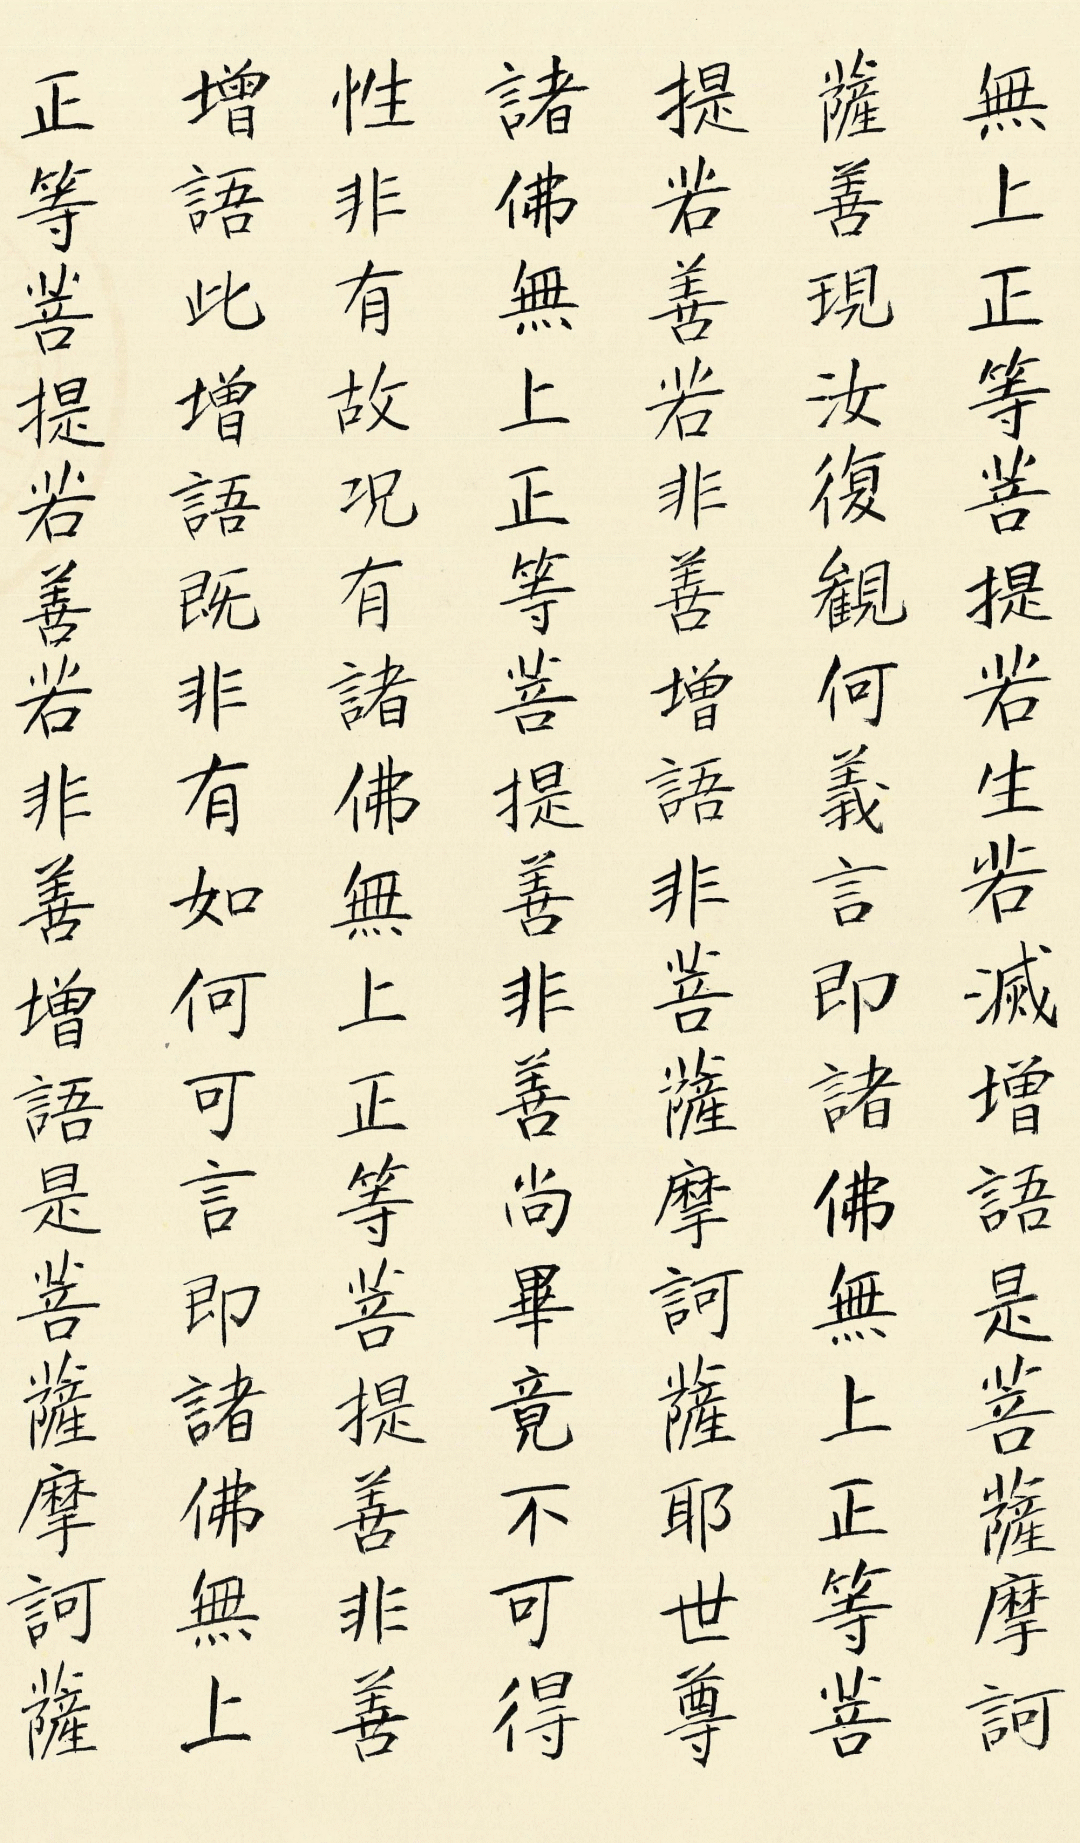 無上正等菩提若生若滅增語是菩薩摩訶
薩善現汝復觀何義言即諸佛無上正等菩
提若善若非善增語非菩薩摩訶薩耶世尊
諸佛無上正等菩提善非善尚畢竟不可得
性非有故况有諸佛無上正等菩提善非善
增語此增語既非有如何可言即諸佛無上
正等菩提若善若非善增語是菩薩摩訶薩